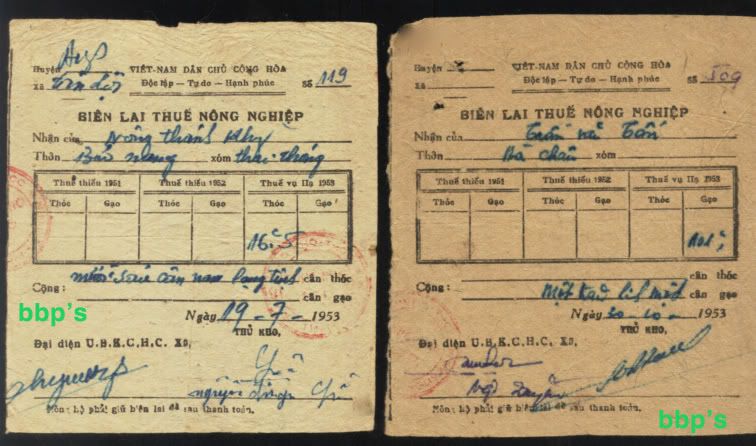 Huyện
VIỆT-NAM DÂN CHỦ CỘNG HÒA
Xã
Độc lập - Tự do - Hạnh phúc
Số 119
BIÊN LAI THUẾ NÔNG NGHIỆP
Nhận của Nông thanh
Thôn xóm
Thuế thiếu 1951 Thuế thiếu 1952 Thuế vụ Hạ 1953
Thóc Gạo Thóc Gạo Thóc Gạo
16,5
cân thóc
Cộng :
cân gạo
Ngày 19 - 7 - 1953
THỦ KHO,
Đại diện U.B.K.C.H.C. Xã,
nguyễn
Nông hộ phải giữ biên lai để sau thanh toán.
bbp's
Huyện
VIỆT-NAM DÂN CHỦ CỘNG HÒA
Xã
Độc lập - Tự do - Hạnh phúc
Số 509
BIÊN LAI THUẾ NÔNG NGHIỆP
Nhận của Trần
Thôn Hà Châu xóm
Thuế thiếu 1951 Thuế thiếu 1952 Thuế vụ Hạ 1953
Thóc Gạo Thóc Gạo Thóc Gạo
cân thóc
Cộng : Một
cân gạo
Ngày 20 - 10 - 1953
THỦ KHO,
Đại diện U.B.K.C.H.C. Xã,
Nông hộ phải giữ biên lai để sau thanh toán.
bbp's